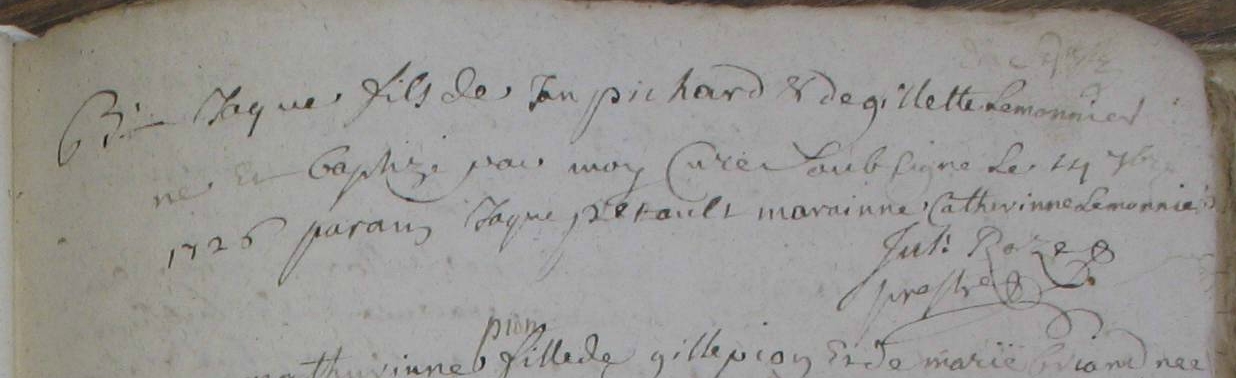 Jaque fils de Jan pichard & de gillette Lemonnier
né Et baptizé par moy Curé Soubsigne Le 14 7bre
1726 parain Jaque perault marainne Catherinne Lemonnier
Jul: Roze
prestre
pion
fille de gille pion Et de marië briand nee